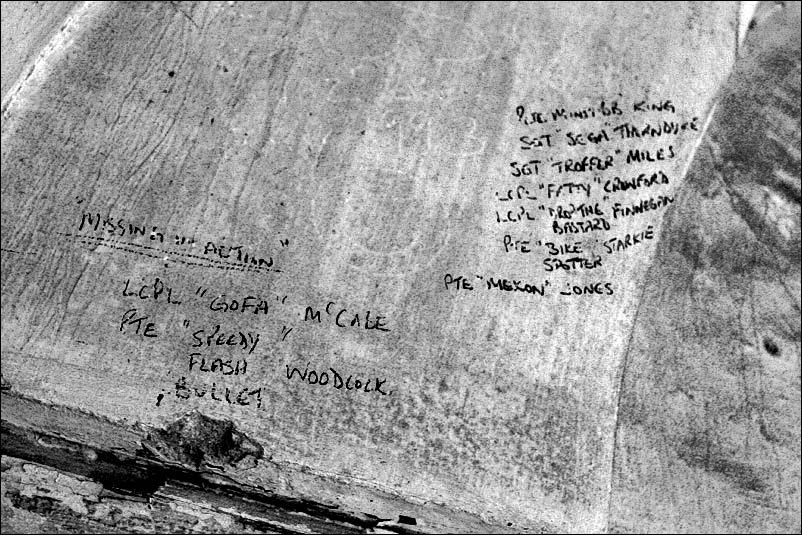 KING
SGT "SEGA"
SGT "TROFFER" MILES
LCPL "FATTY" CRAWFORD
LCPL "THE" FINNEGAN
BASTARD
PTE "BIKE" STARKIE
SPOTTER
PTE "MEKON" JONES
"MISSING IN ACTION"
LCPL "GOFA" McCALE
PTE "SPEEDY"
FLASH WOODCOCK.
BULLET